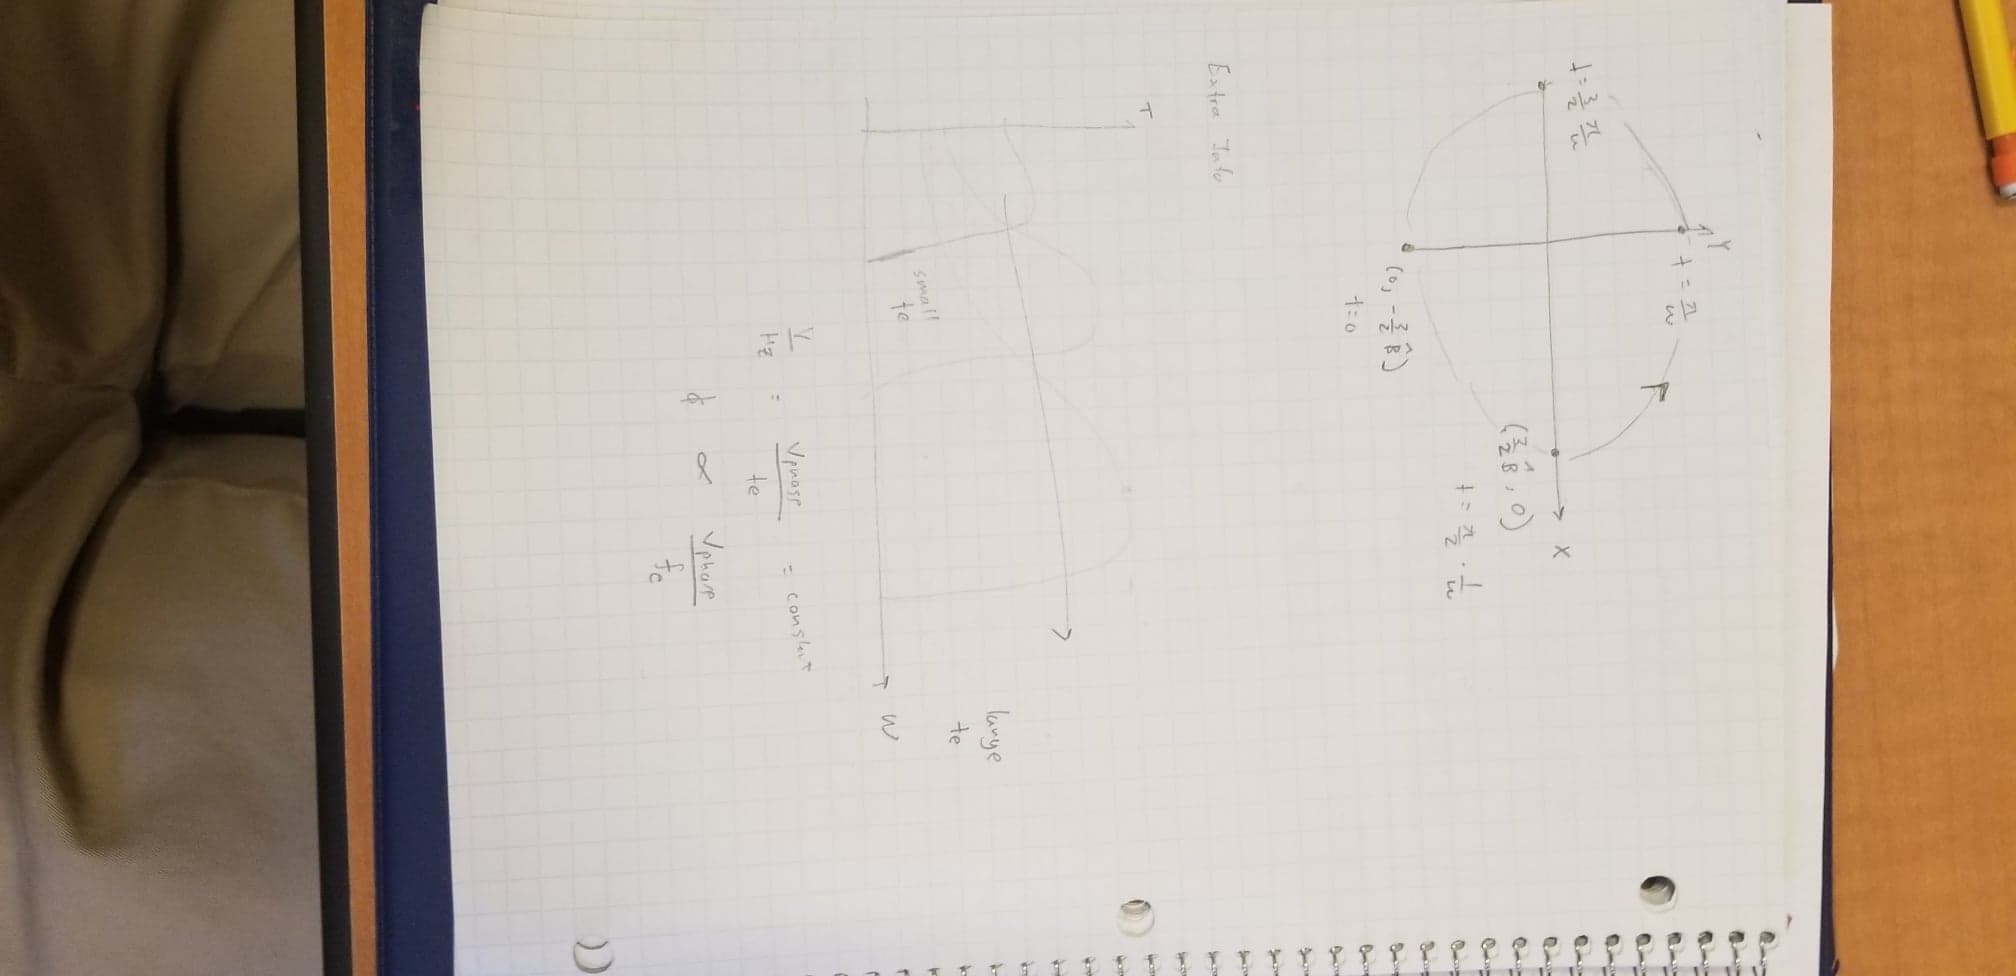 Y
t = π/w
t = 3/2 π/w
X
(3/2 B̂, 0)
t = π/2 · 1/w
(0, -3/2 B̂)
t=0
Extra Info
T
large
te
small
te
w
V/Hz = Vphase/te = constant
ϕ ∝ Vphase/fe